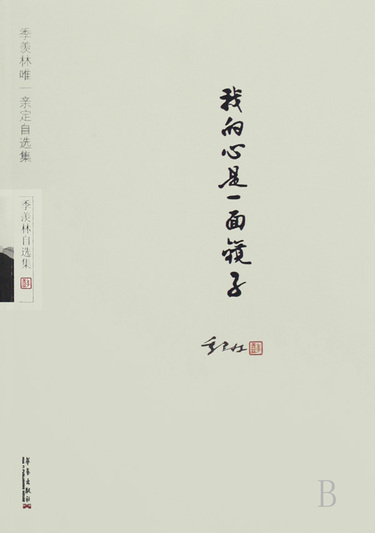 季羡林唯一亲定自选集
季羡林自选集
我的心是一面镜子
季羡林
华艺出版社
B